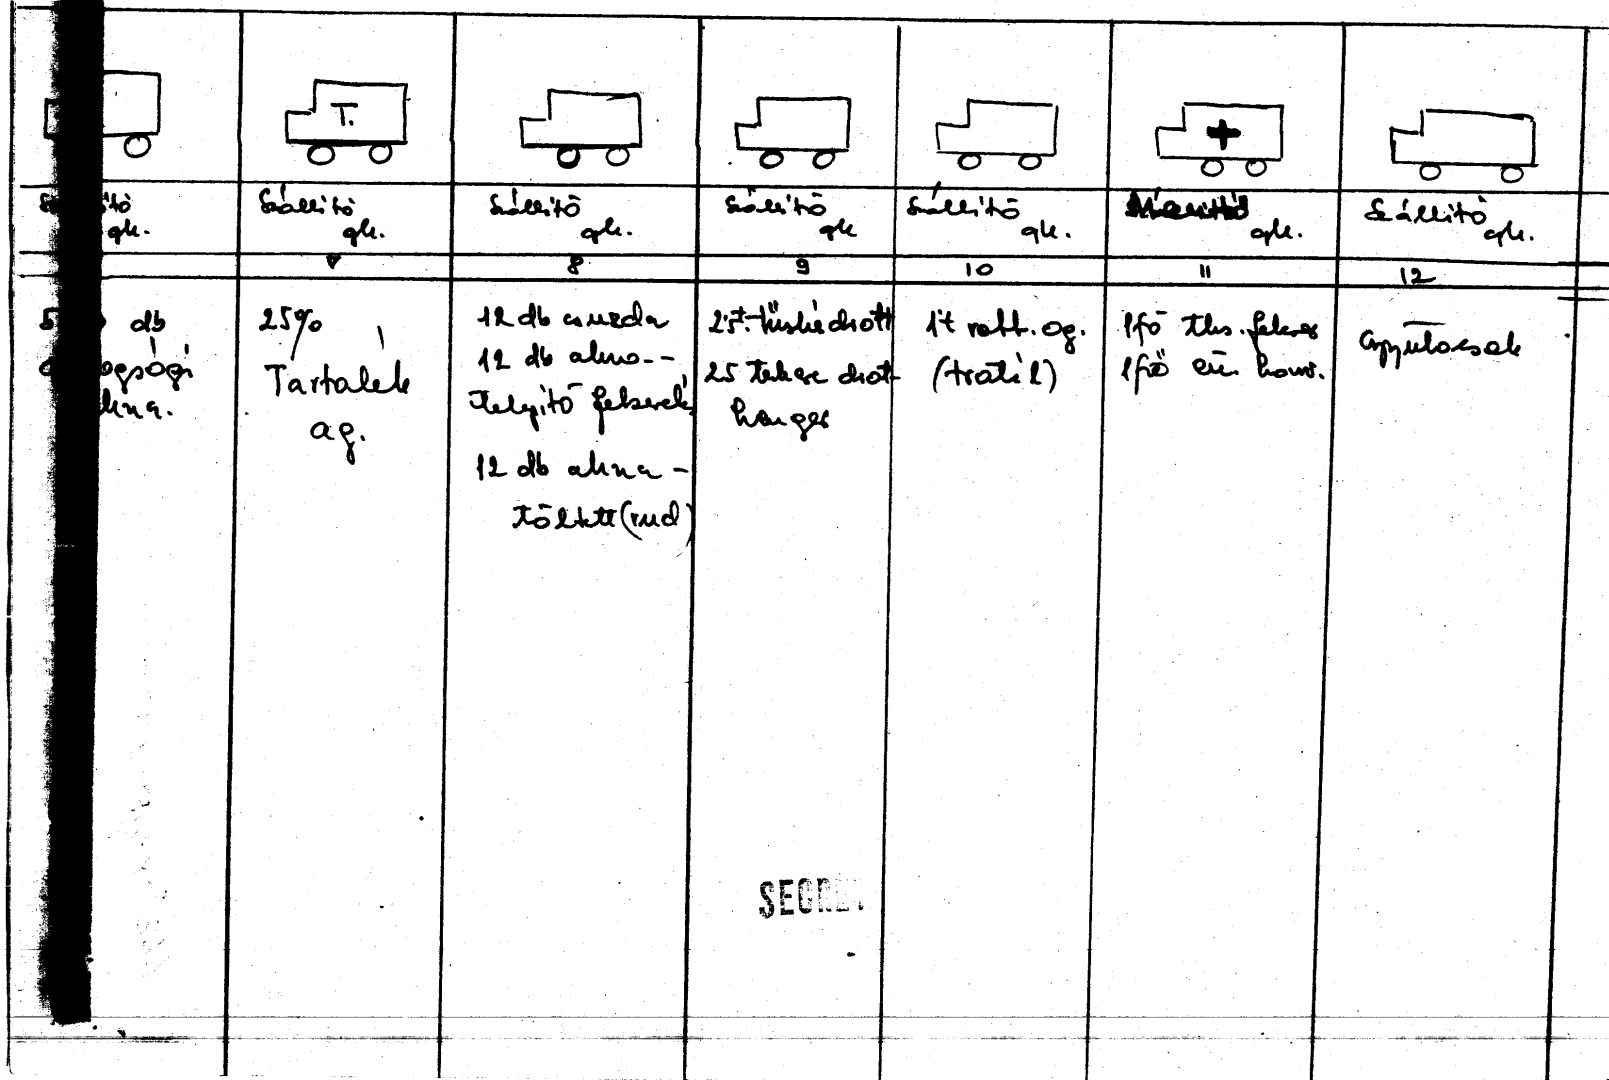 T.
Szállító
gk.
Szállító
gk.
Szállító
gk
Szállító
gk.
gk.
Szállító
gk.
gk.
8
9
10
11
12
db
25%
Tartalék
ag.
12 db csuzda
12 db akna-
telepítő felszerelés
12 db akna-
töltett (rud)
25 t. tüskésdrót
25 tekercs drót-
henger
1t robb. ag.
(trotil)
1fő ths. felcser
1fő eü. honv.
Gyujtócsak
SECRET